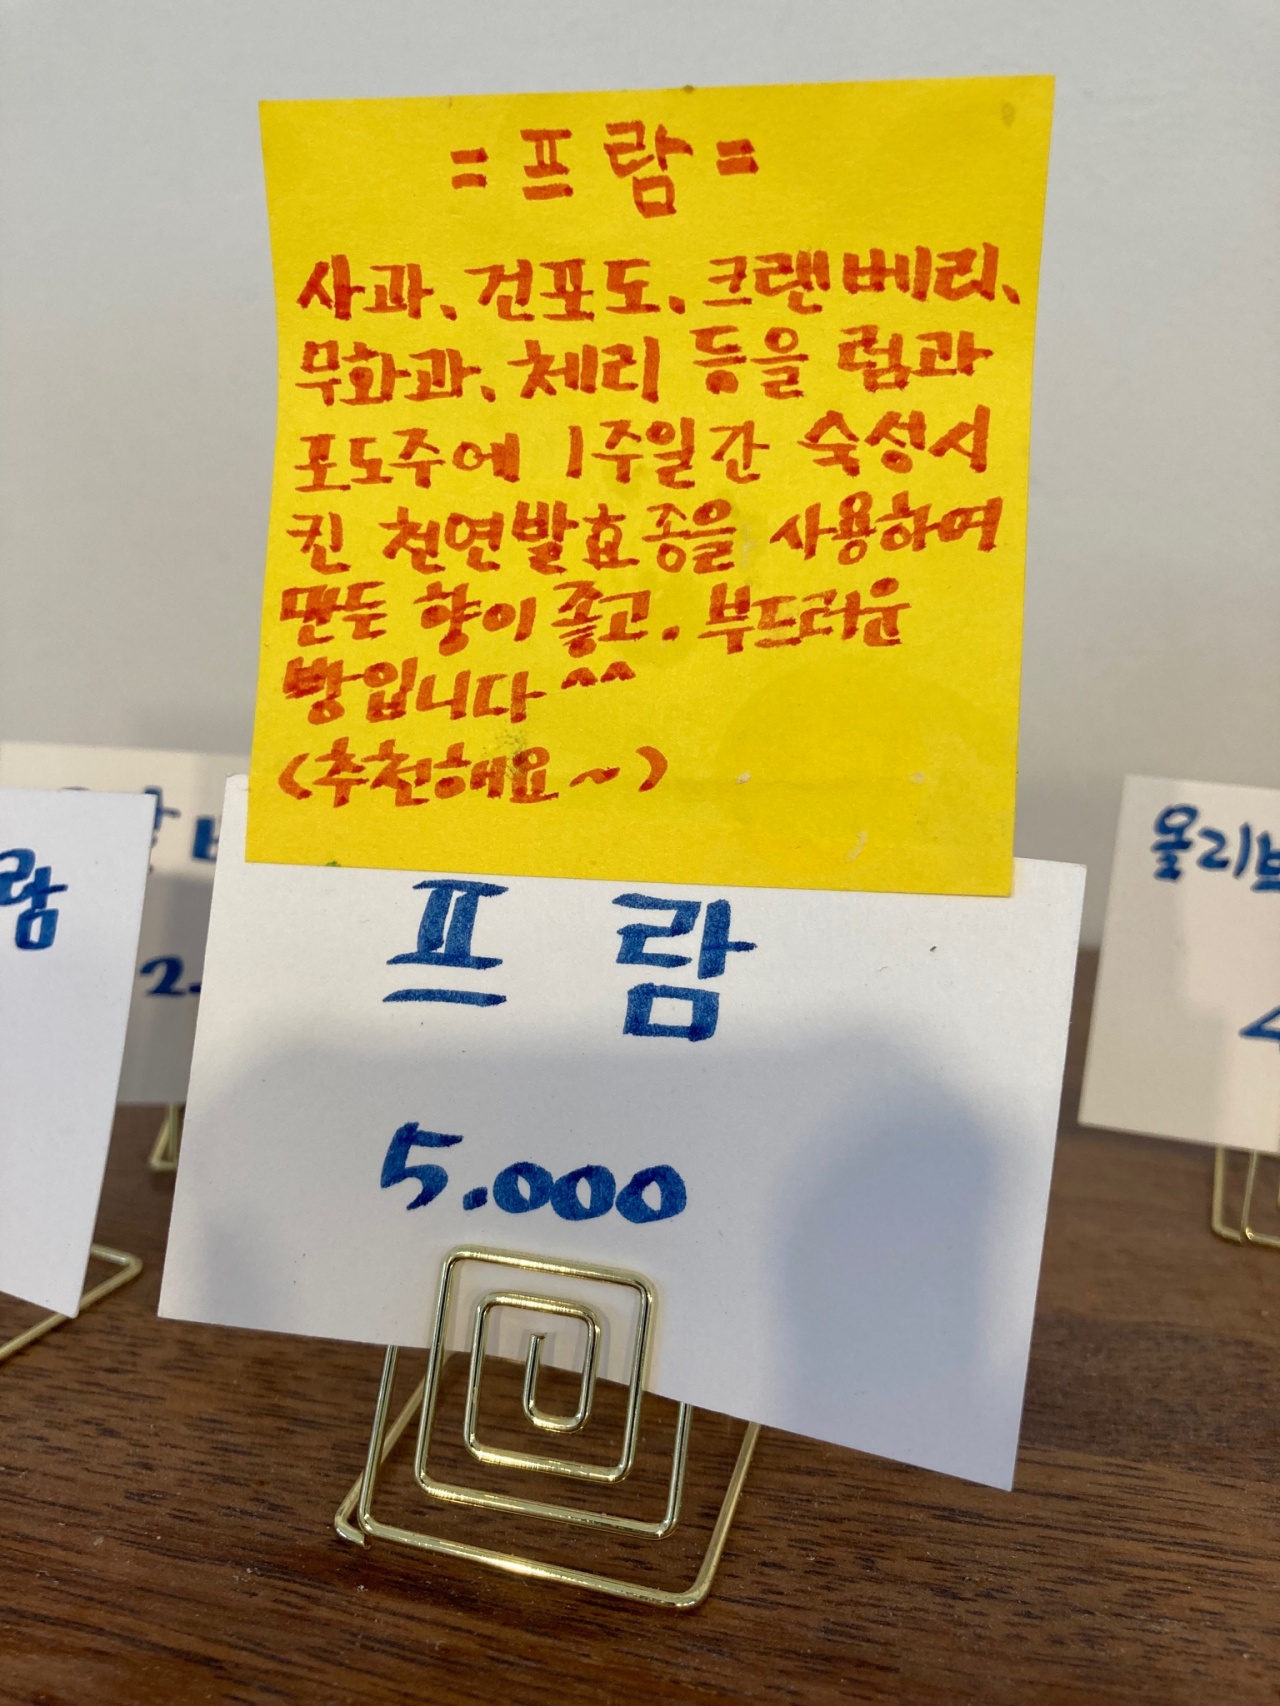 = 프 람 =
사과、건포도、크랜베리、
무화과、체리 등을 럼과
포도주에 1주일간 숙성시
킨 천연발효종을 사용하여
만든 향이 좋고、부드러운
빵입니다^^
(추천해요~)
프 람
5.000
람
2.
올리브